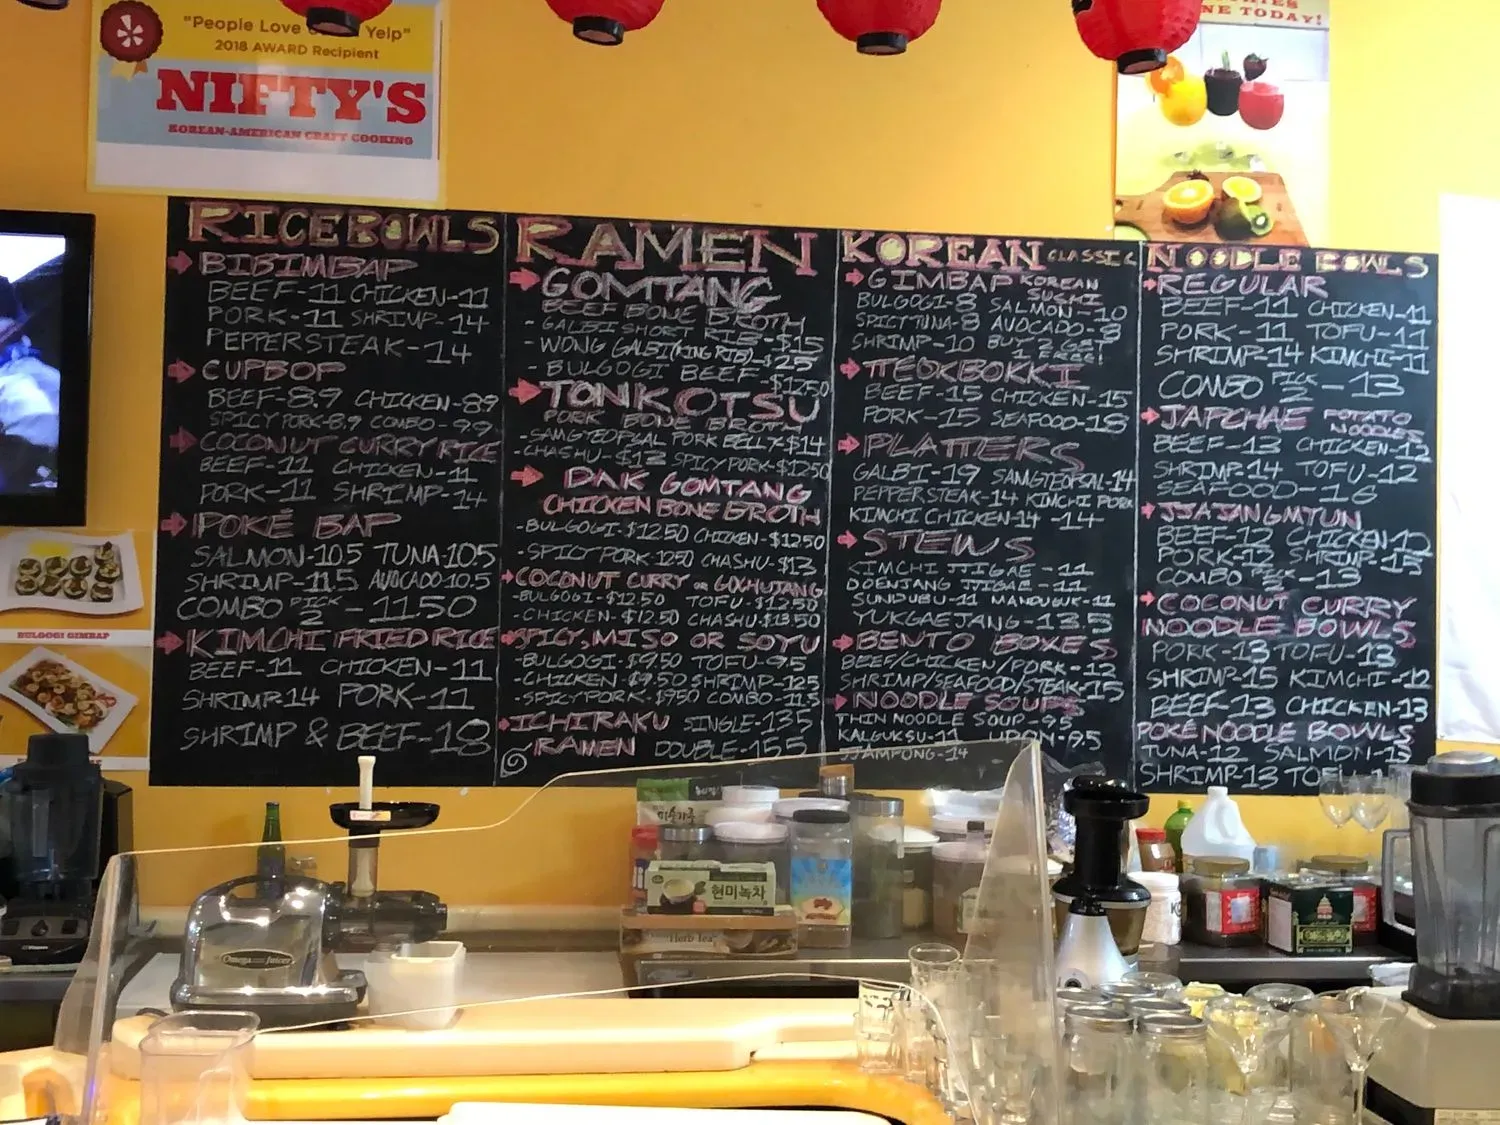 "People Love Yelp"
2018 AWARD Recipient
NIFTY'S
KOREAN-AMERICAN CRAFT COOKING
NE TODAY!
RICE BOWLS
BIBIMBAP
BEEF-11 CHICKEN-11
PORK-11 SHRIMP-14
PEPPERSTEAK-14
CUPBOP
BEEF-8.9 CHICKEN-8.9
SPICY PORK-8.9 COMBO-9.9
COCONUT CURRY RICE
BEEF-11 CHICKEN-11
PORK-11 SHRIMP-14
POKÉ BAP
SALMON-10.5 TUNA-10.5
SHRIMP-11.5 AVOCADO-10.5
COMBO PICK 2-11.50
KIMCHI FRIED RICE
BEEF-11 CHICKEN-11
SHRIMP-14 PORK-11
SHRIMP & BEEF-18
RAMEN
GOMTANG
BEEF BONE BROTH
- GALBI SHORT RIB-$15
- WONG GALBI (KING RIB)-$25
- BULGOGI BEEF-$12.50
TONKOTSU
PORK BONE BROTH
-SAMGYEOPSAL PORK BELLY-$14
-CHASHU-$13 SPICY PORK-$12.50
DAK GOMTANG
CHICKEN BONE BROTH
-BULGOGI-$12.50 CHICKEN-$12.50
-SPICY PORK-12.50 CHASHU-$13
COCONUT CURRY OR GOCHUJANG
-BULGOGI-$12.50 TOFU-$12.50
-CHICKEN-$12.50 CHASHU-$13.50
SPICY, MISO OR SOYU
-BULGOGI-$9.50 TOFU-9.5
-CHICKEN-$9.50 SHRIMP-12.5
-SPICY PORK-$9.50 COMBO-11.5
ICHIRAKU SINGLE-13.5
RAMEN DOUBLE-15.5
KOREAN CLASSIC
GIMBAP KOREAN SUSHI
BULGOGI-8 SALMON-10
SPICY TUNA-8 AVOCADO-8
SHRIMP-10 BUY 2 GET 1 FREE!
TTEOKBOKKI
BEEF-15 CHICKEN-15
PORK-15 SEAFOOD-18
PLATTERS
GALBI-19 SAMGYEOPSAL-14
PEPPER STEAK-14 KIMCHI PORK
KIMCHI CHICKEN-14 -14
STEWS
KIMCHI JJIGAE-11
DOENJANG JJIGAE-11
SUNDUBU-11 MANDUGUK-11
YUKGAEJANG-13.5
BENTO BOXES
BEEF/CHICKEN/PORK-12
SHRIMP/SEAFOOD/STEAK-15
NOODLE SOUPS
THIN NOODLE SOUP-9.5
KALGUKSU-11 UDON-9.5
JJAMPONG-14
NOODLE BOWLS
REGULAR
BEEF-11 CHICKEN-11
PORK-11 TOFU-11
SHRIMP-14 KIMCHI-11
COMBO PICK 2-13
JAPCHAE POTATO NOODLES
BEEF-13 CHICKEN-12
SHRIMP-14 TOFU-12
SEAFOOD-16
JJAJANGMYUN
BEEF-12 CHICKEN-12
PORK-12 SHRIMP-15
COMBO PICK 2-13
COCONUT CURRY
NOODLE BOWLS
PORK-13 TOFU-13
SHRIMP-15 KIMCHI-12
BEEF-13 CHICKEN-13
POKÉ NOODLE BOWLS
TUNA-12 SALMON-13
SHRIMP-13 TOFU
BULGOGI GIMBAP
미숫가루
현미녹차
Herb Tea
Omega Juicer